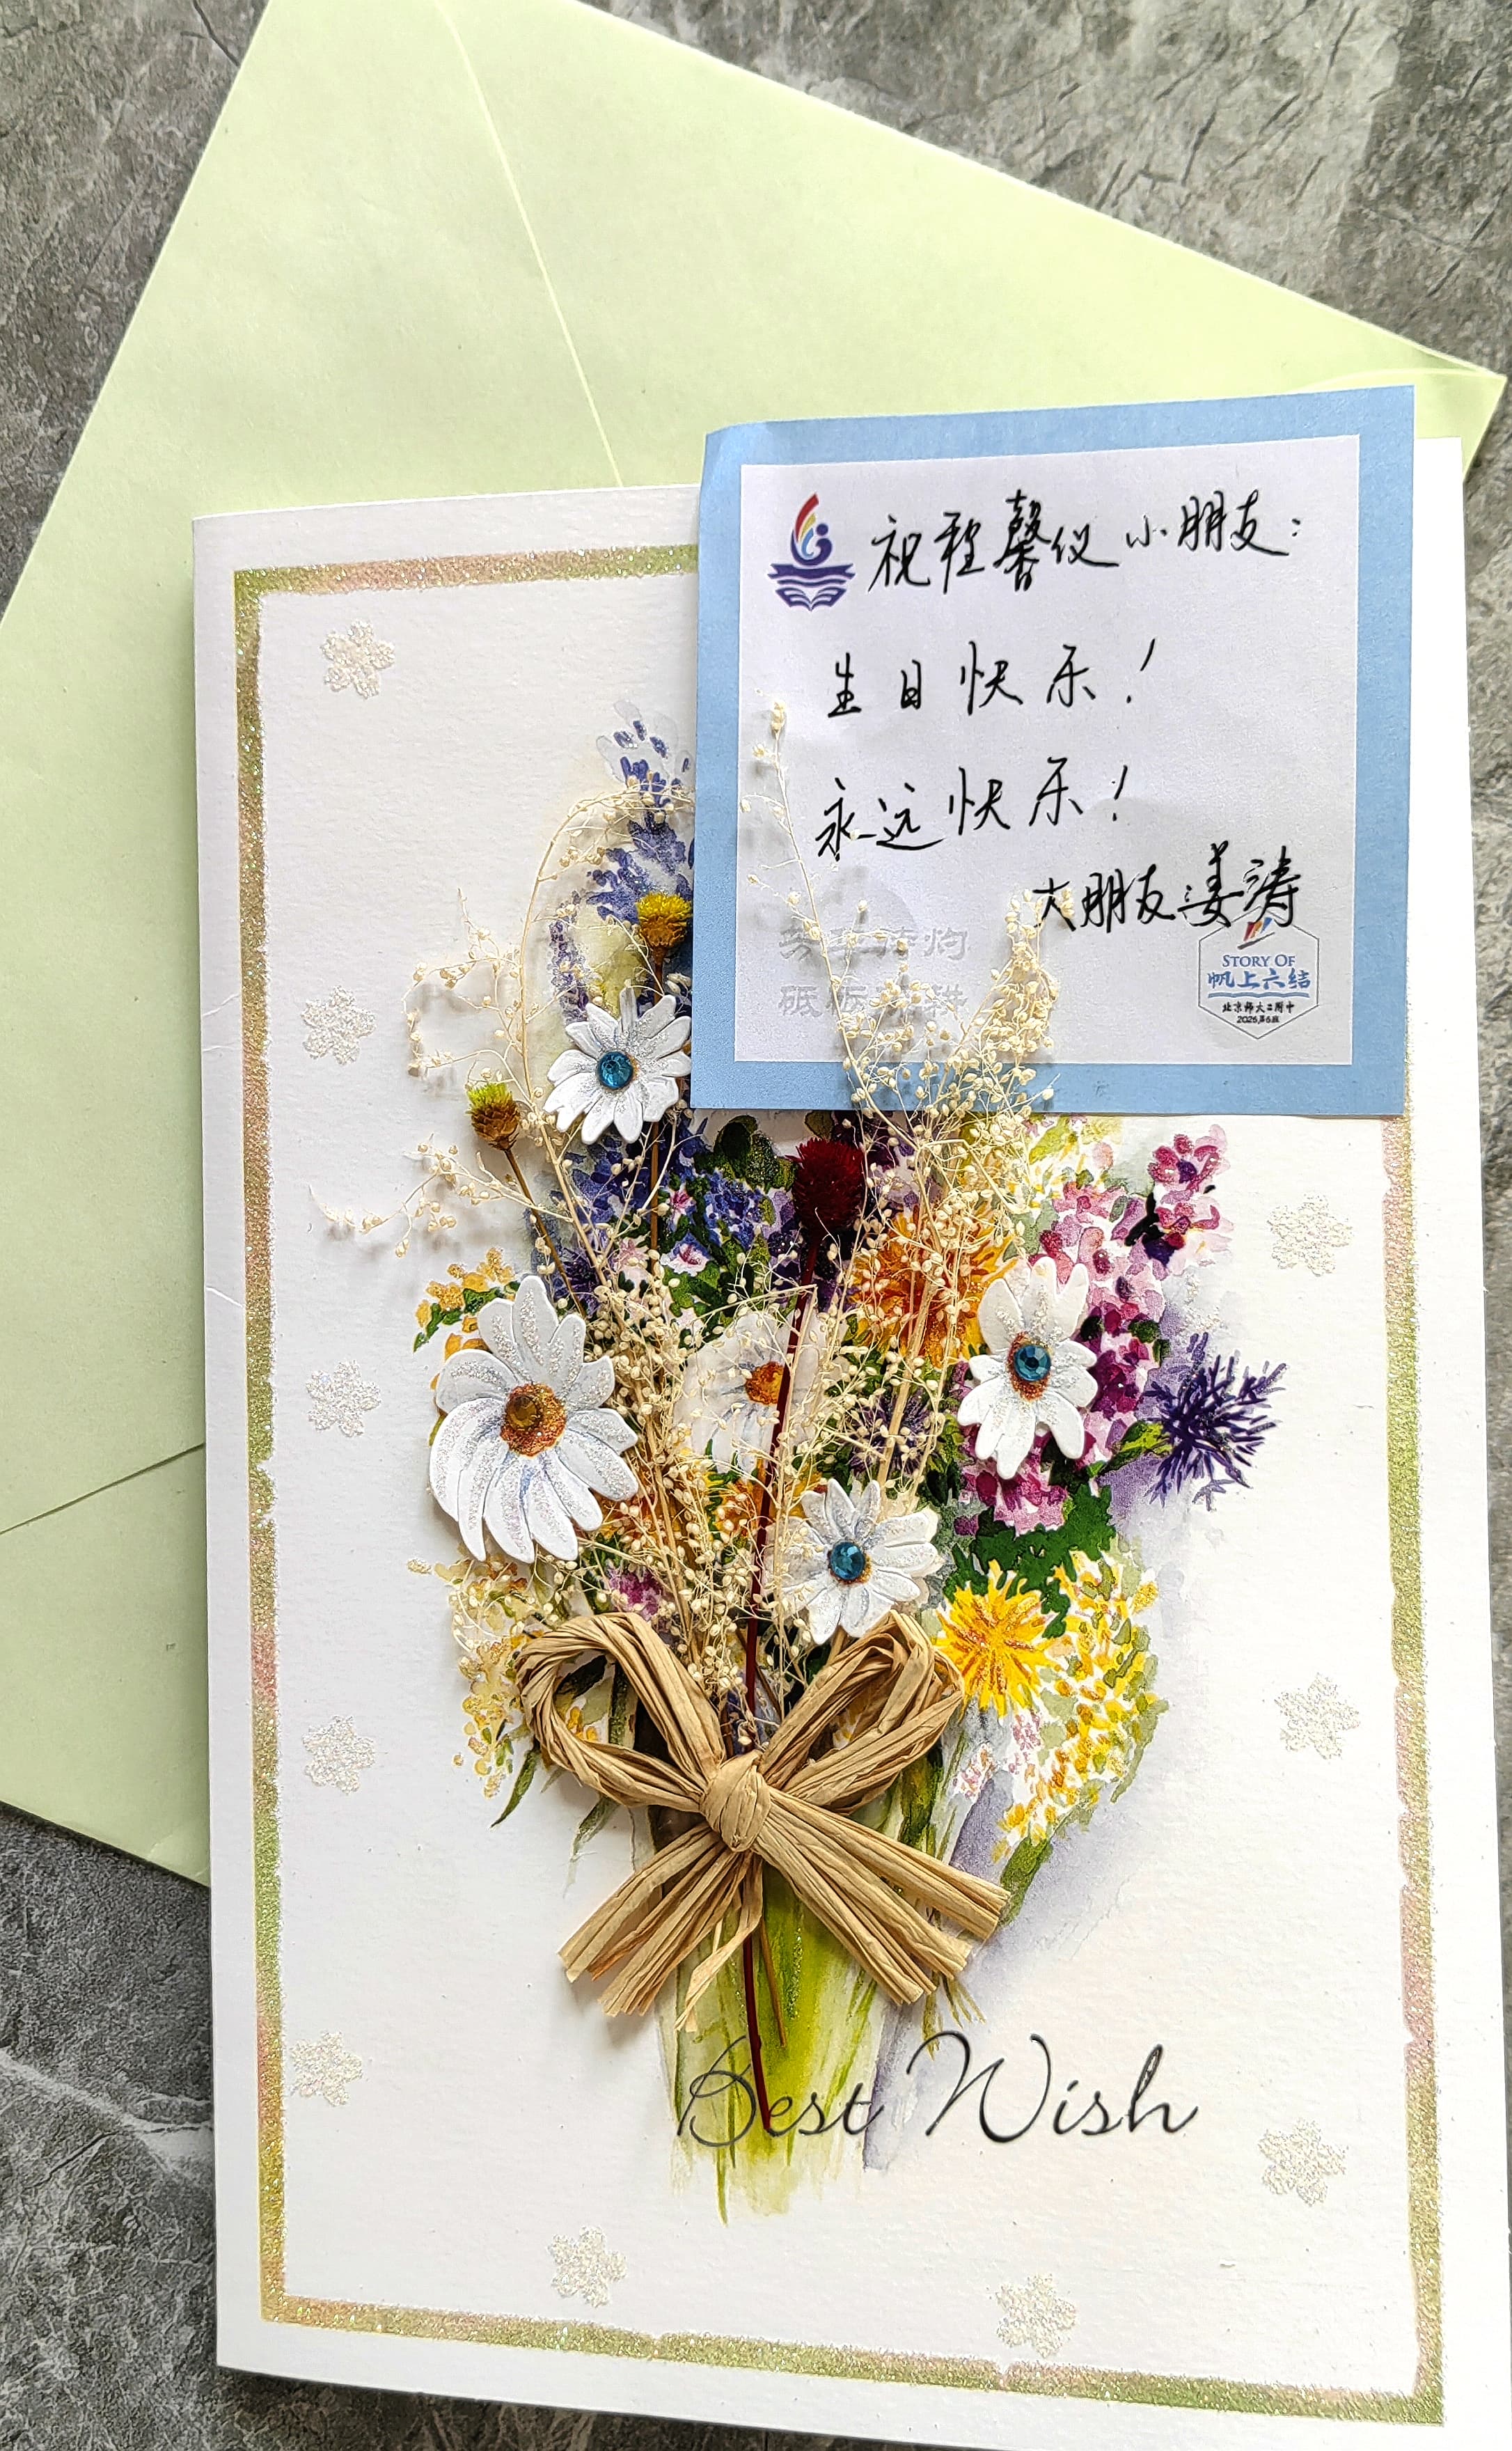 祝程馨仪小朋友:
生日快乐!
永远快乐!
大朋友姜涛
STORY OF
帆上六结
北京师大二附中
2026届6班
Best Wish